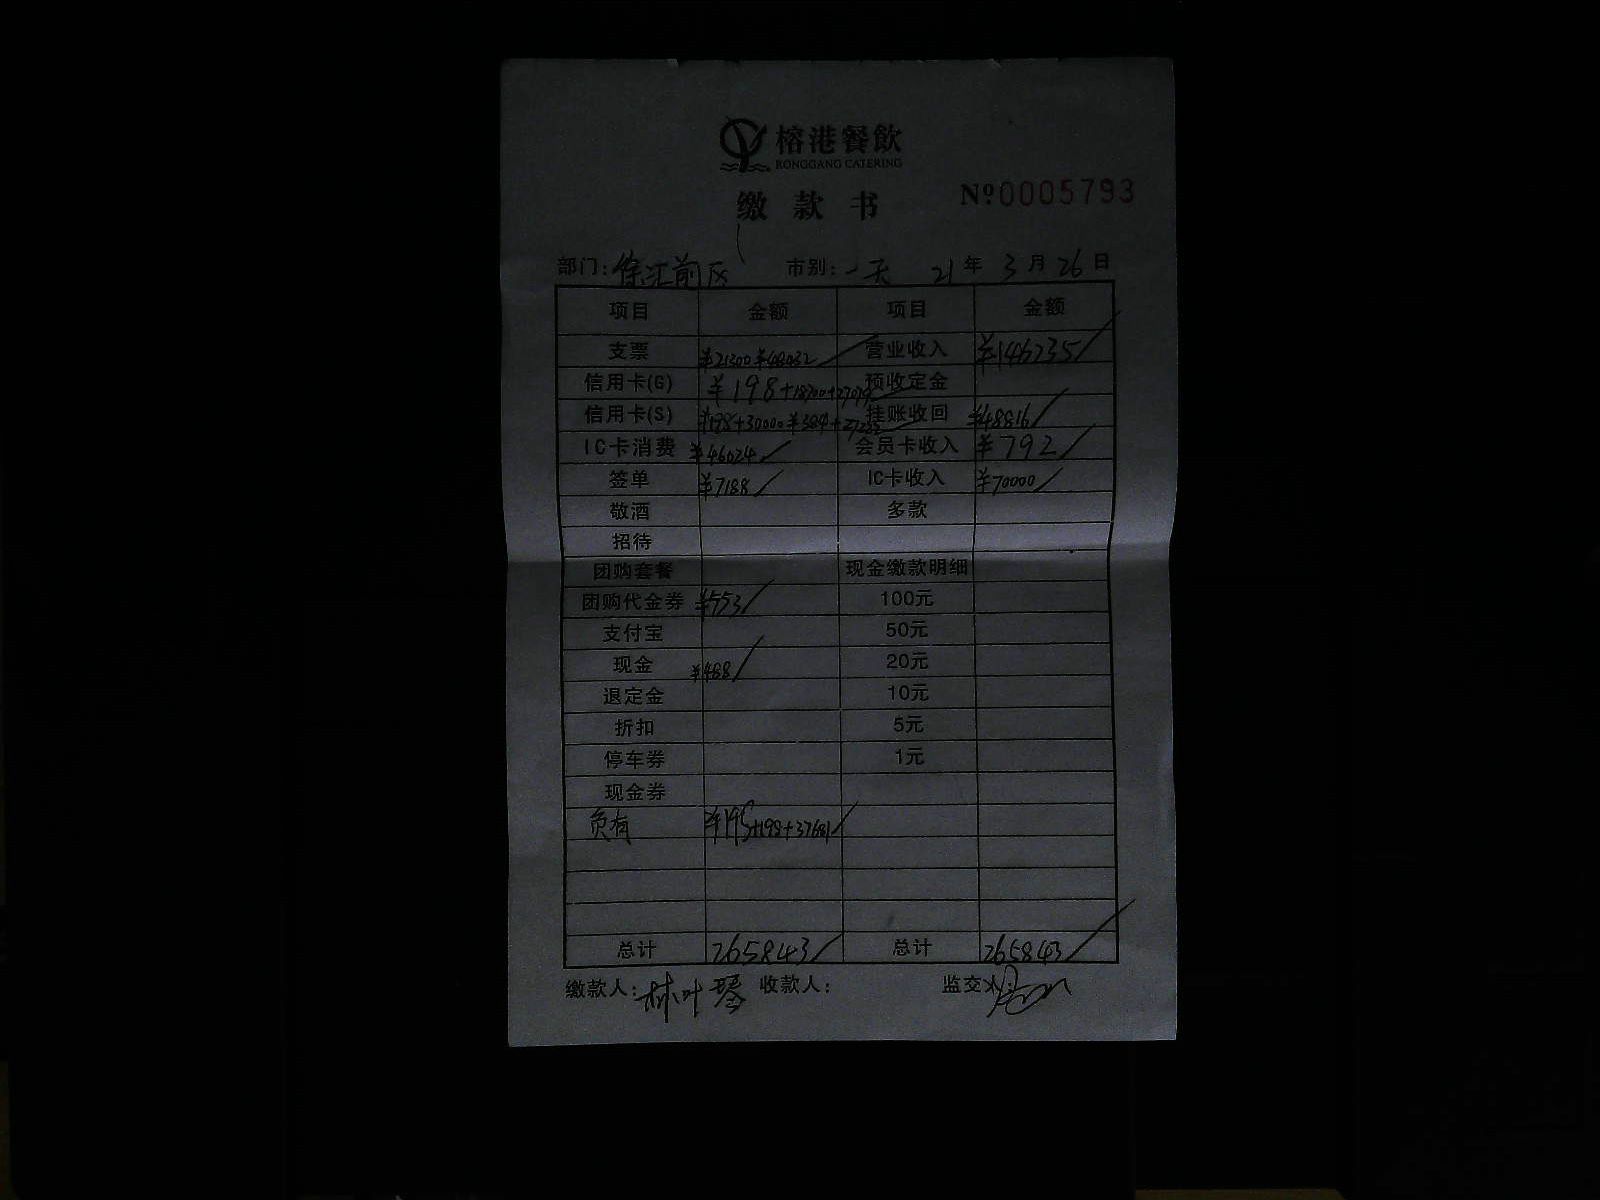 榕港餐飲
RONGGANG CATERING
缴款书
№0005793
部门:徐汇前区 市别:一天 21年3月26日
项目 金额 项目 金额
支票 ¥21300 ¥48032 营业收入 ¥146235
信用卡(G) ¥198+18700+27079 预收定金
信用卡(S) ¥198+30000 挂账收回 ¥48816
IC卡消费 ¥46024 会员卡收入 ¥792
签单 ¥7188 IC卡收入 ¥70000
敬酒 多款
招待
团购套餐 现金缴款明细
团购代金券 ¥553 100元
支付宝 50元
现金 ¥488 20元
退定金 10元
折扣 5元
停车券 1元
现金券
¥198+198+37681
总计 265843 总计 265843
缴款人:林叶琴 收款人: 监交人: